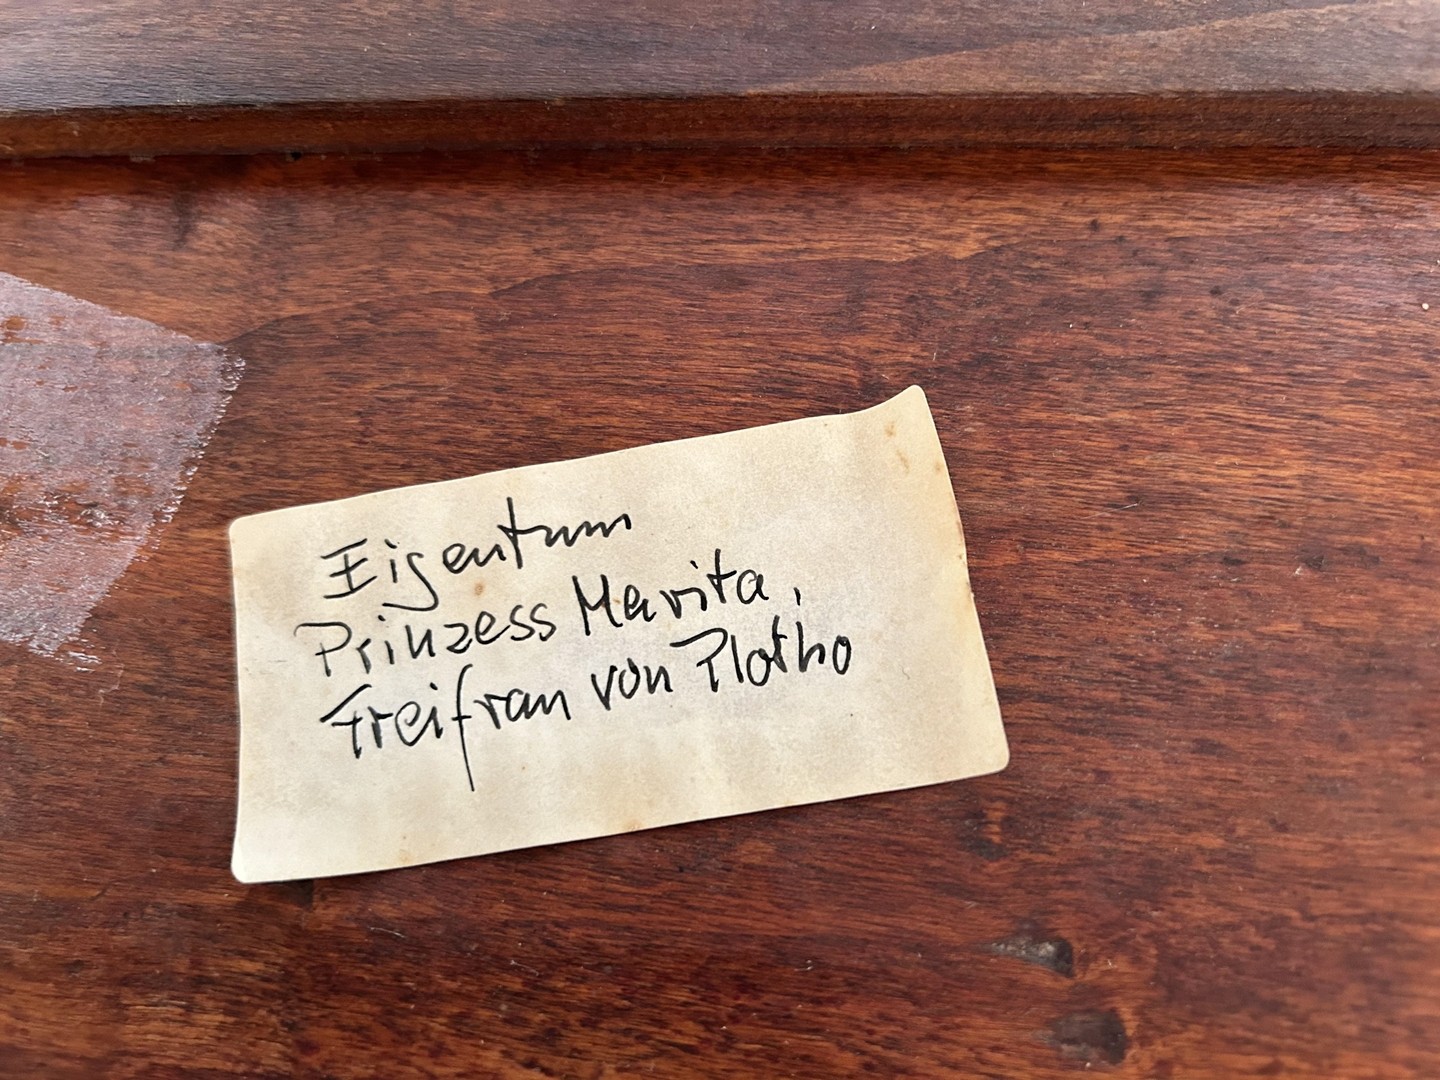 Eigentum
Prinzess Marita,
Freifrau von Plotho